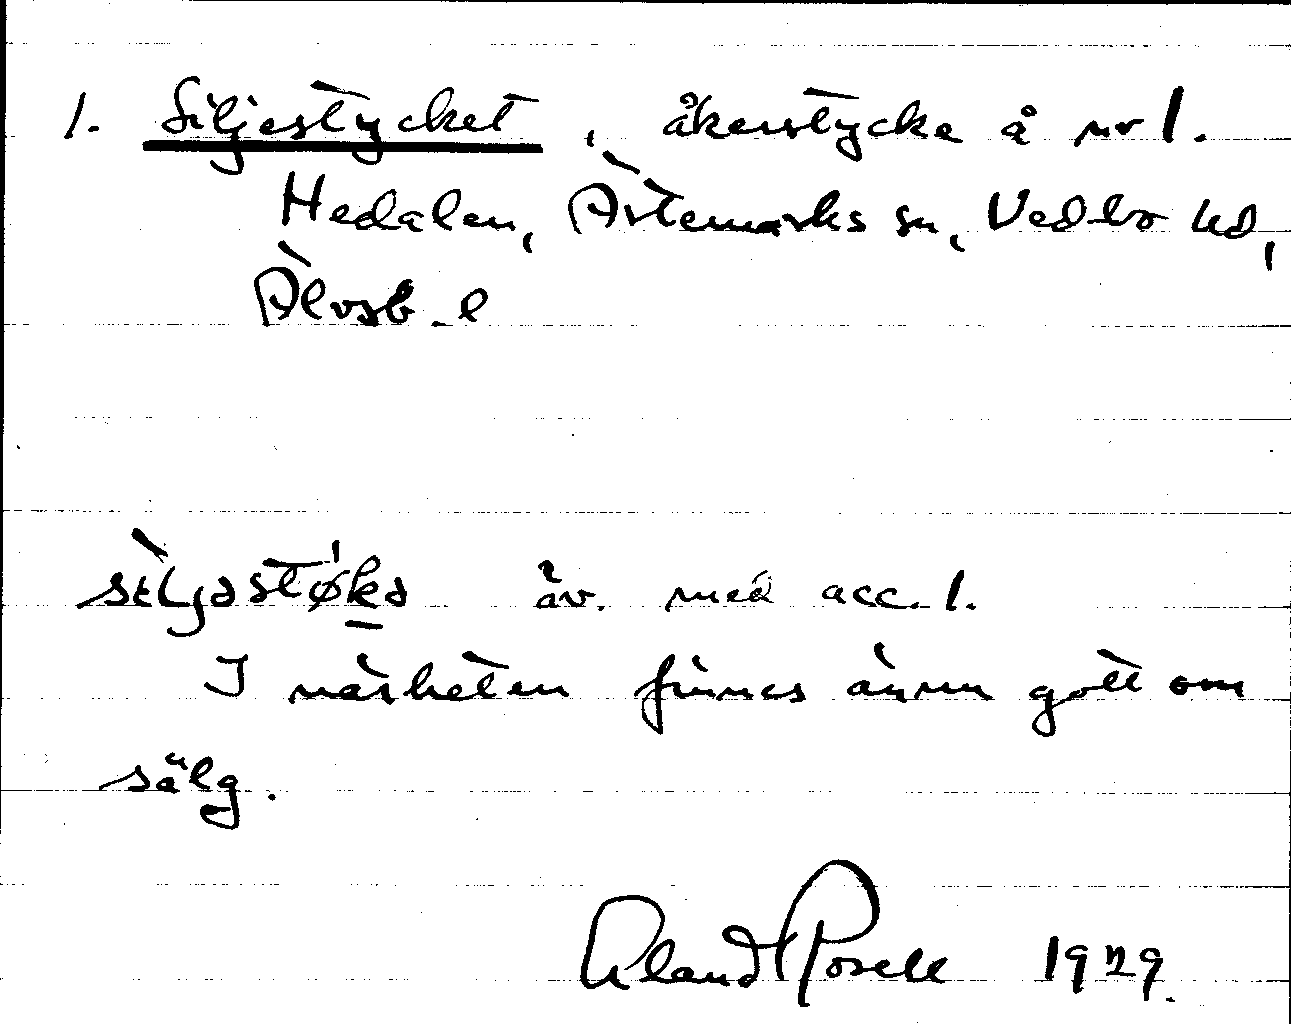 1. Siljestycket, åkerstycke å nr 1.
Hedalen, Ärtemarks sn, Vedbo hd,
Älvsb. l
äv. med acc. 1.
I närheten finnes ännu gott om
sälg.
Rosell 1929.